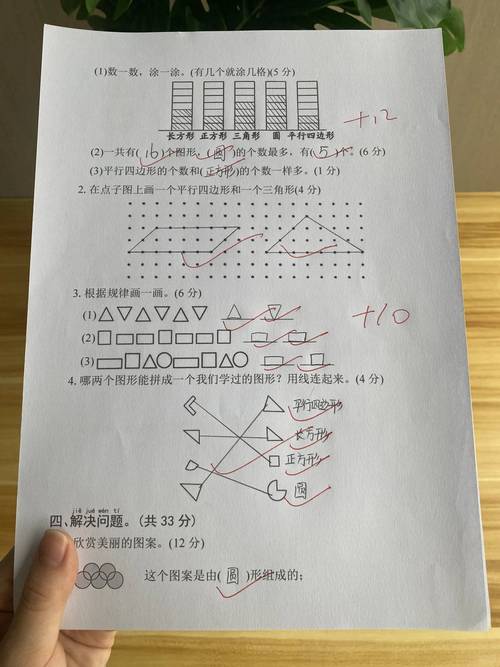 (1)数一数，涂一涂。(有几个就涂几格)(5 分)
长方形 正方形 三角形 圆 平行四边形
+12
(2)一共有( 16 )个图形，( 圆 )的个数最多，有( 5 )个。(6 分)
(3)平行四边形的个数和(正方形)的个数一样多。(1 分)
2. 在点子图上画一个平行四边形和一个三角形(4 分)
3. 根据规律画一画。(6 分)
+10
(1)
(2)
(3)
4. 哪两个图形能拼成一个我们学过的图形？用线连起来。(4 分)
平行四边形
长方形
正方形
圆
jiě jué wèn tí
四、解决问题。(共 33 分)
欣赏美丽的图案。(12 分)
这个图案是由( 圆 )形组成的；